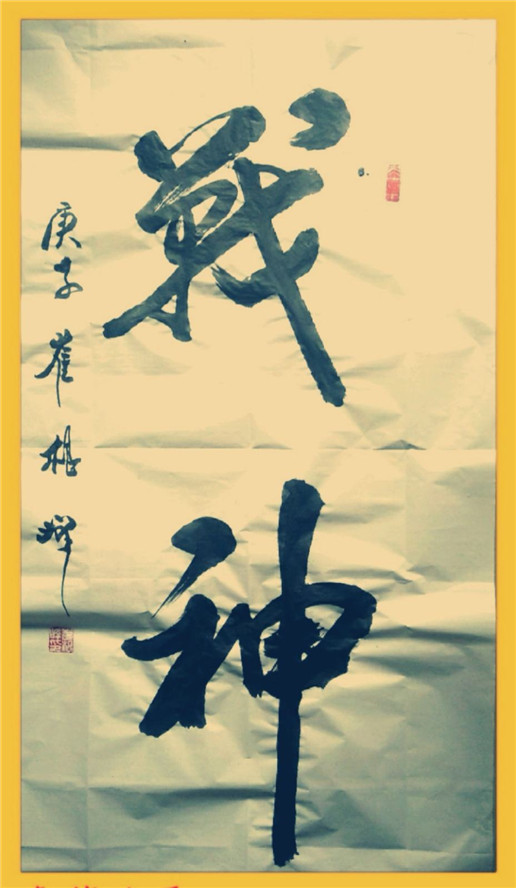 戰神
庚子 崔相輝